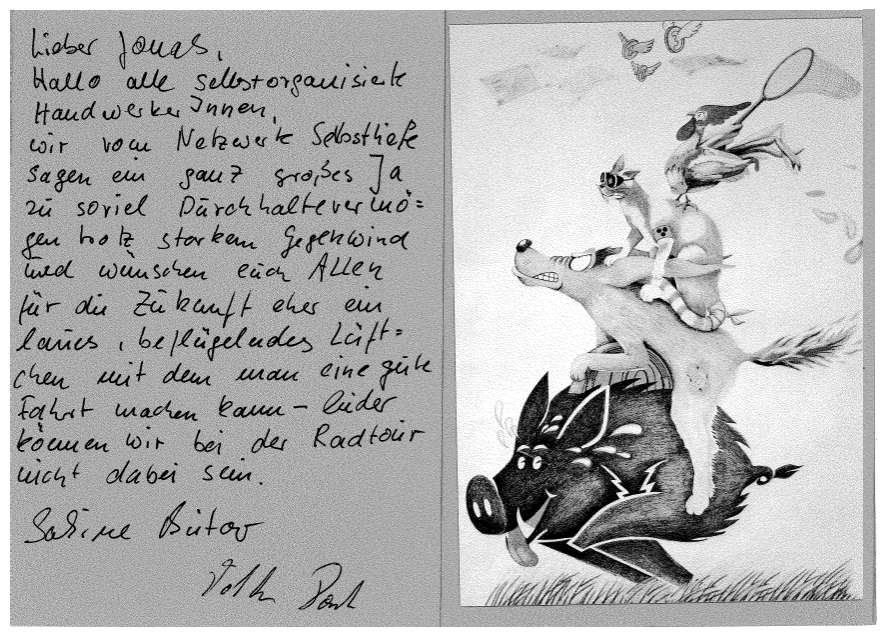 Lieber Jonas,
Hallo alle selbstorganisierte
HandwerkerInnen,
wir vom Netzwerk Selbsthilfe
sagen ein ganz großes Ja
zu soviel Durchhaltevermö=
gen trotz starkem Gegenwind
und wünschen euch Allen
für die Zukunft eher ein
laues, beflügelndes Lüft=
chen mit dem man eine gute
Fahrt machen kann – leider
können wir bei der Radtour
nicht dabei sein.
Sabine